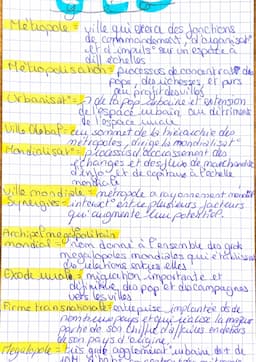 Métropole = ville qui exerce des fonctions
de commandement, d'organisat°
et d'impuls° sur un espace à
diff échelles
Métropolisation = processus de concentrat° des
pop, des richesses, et purs
au profit des villes
Urbanisat° = de la pop urbaine et extension
de l'espace urbain au détriment
de l'espace rurale
Ville Global = au sommet de la hiérarchie des
métropoles, dirige la mondialisat°
Mondialisat° = processus d'accroissement des
échanges et des flux de marchandise
d'info, et de capitaux à l'échelle
mondiale
Ville mondiale = métropole a rayonnement mondial
Synergies = interact° entre plusieurs facteurs
qui augmente leur potentiel.
Archipel mégalopolitain
mondial = nom donné à l'ensemble des gdes
megalopoles mondiales qui
des relations entre elles
Exode rurale = migration importante et
définitive des pop des campagnes
vers les villes
Firme transnationale = entreprise implantée ds de
nombreux pays et qui réalise la majeur
partie de son chiffre d'affaires en dehors
de son pays d'origine.
Megalopole = très gde agglomérat° urbaine dont de